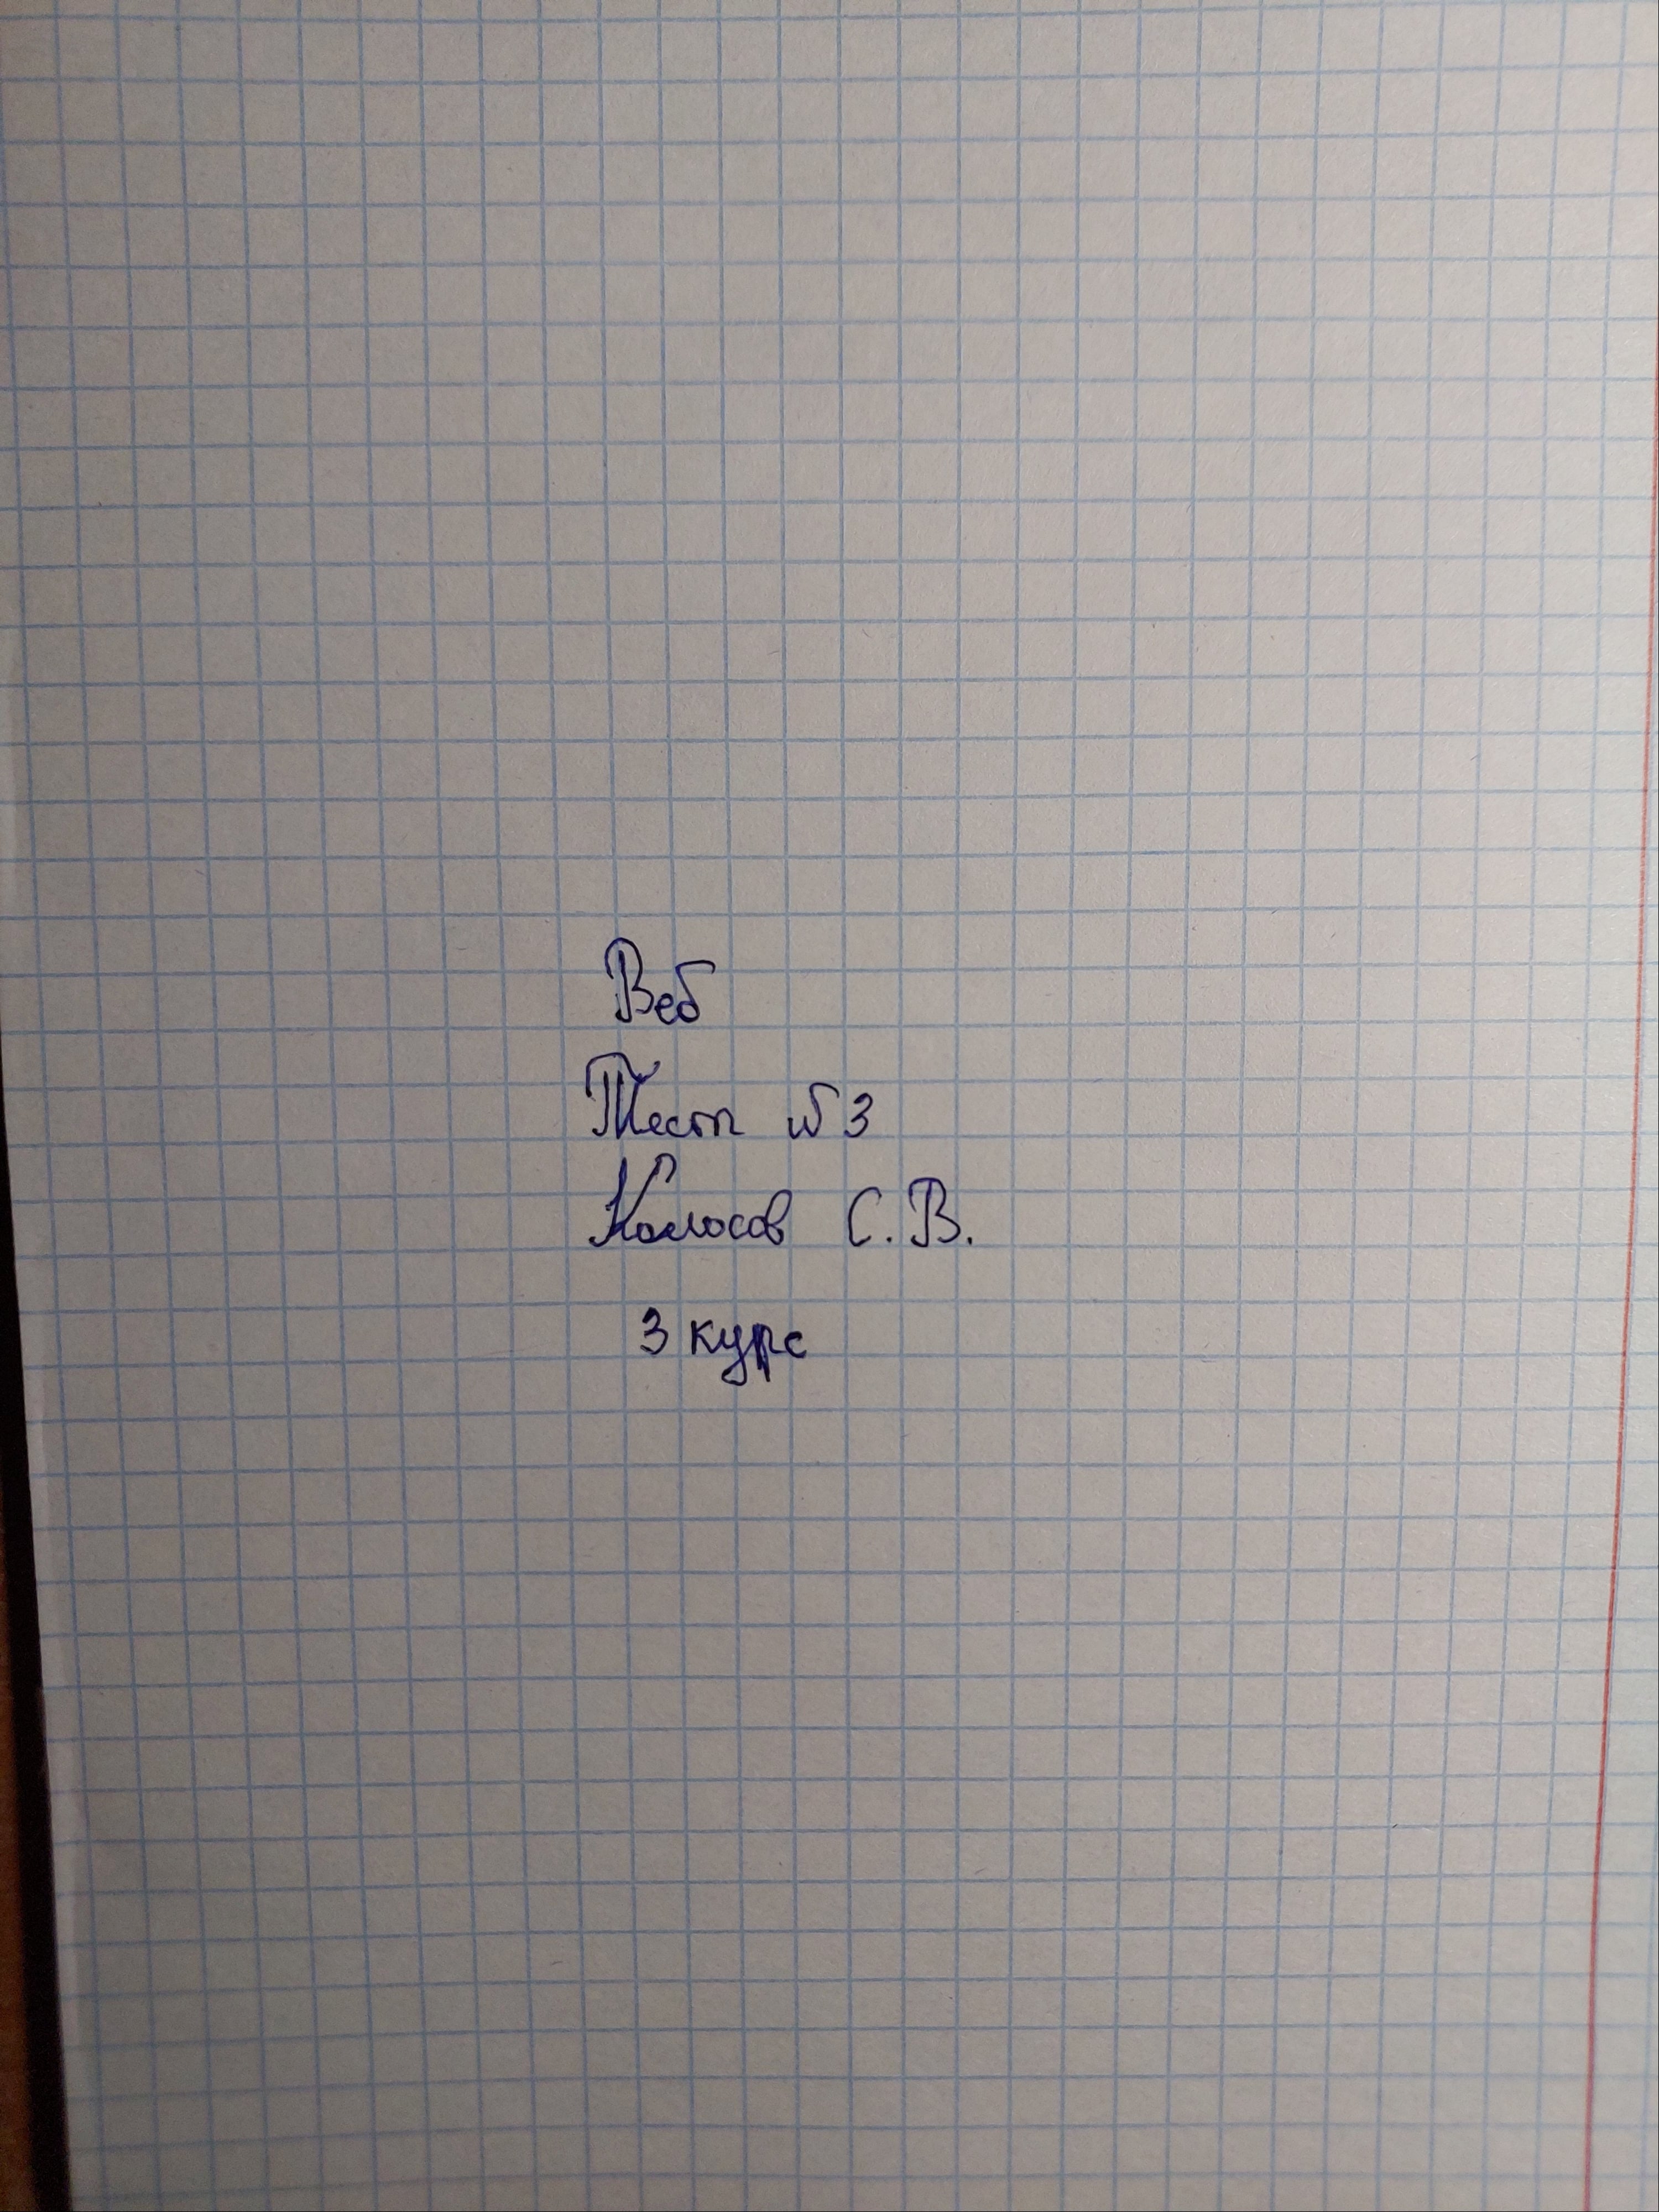 Веб
Тест №3
Колосов С.В.
3 курс